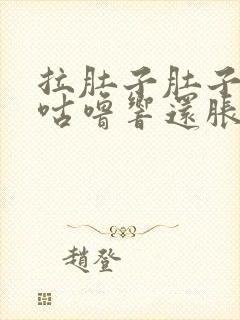 拉肚子肚子
咕嚕響還脹
趙登